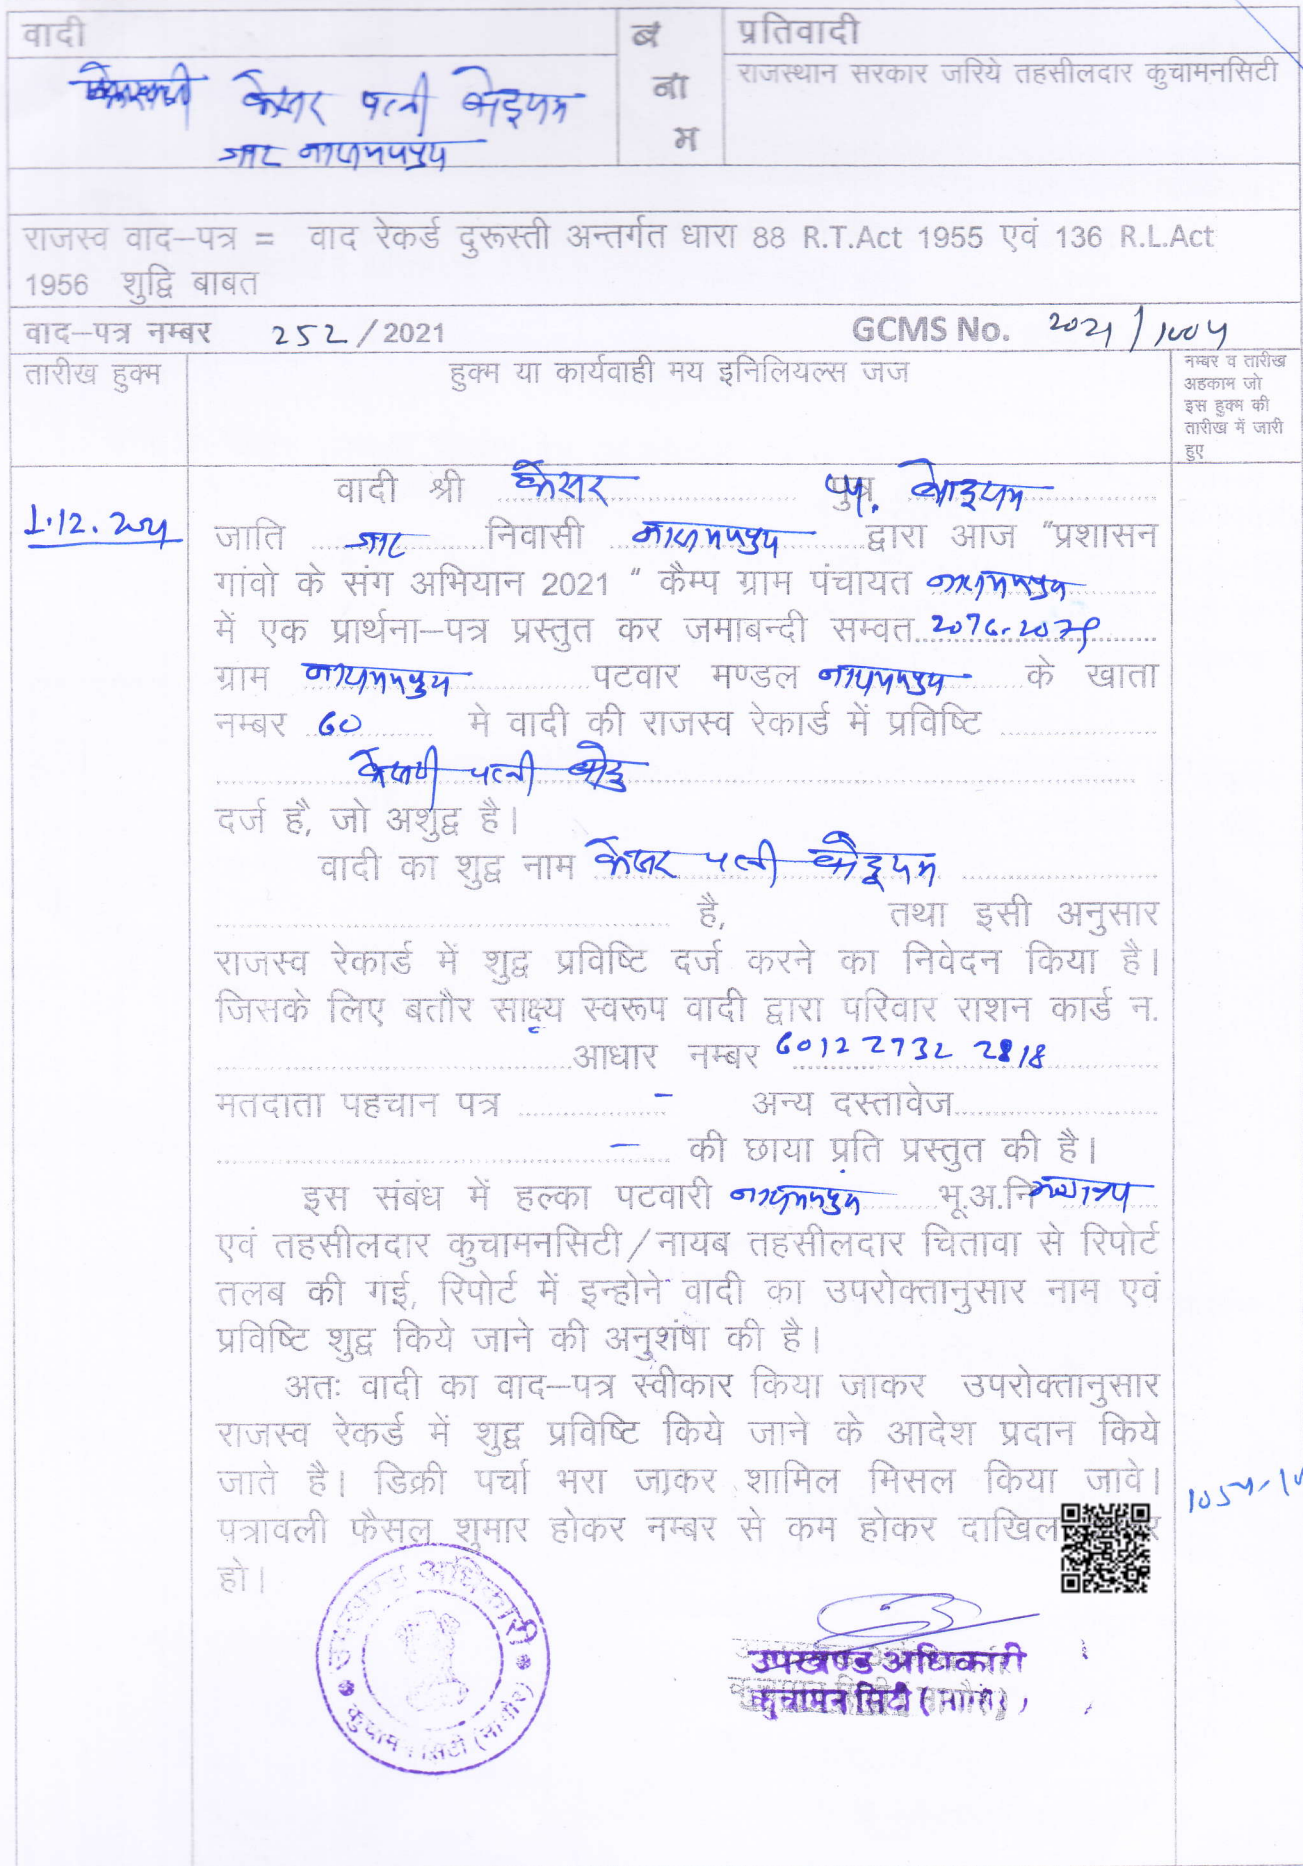 वादी
ब
ना
म
प्रतिवादी
केसर पत्नी
जाट
राजस्थान सरकार जरिये तहसीलदार कुचामनसिटी
राजस्व वाद–पत्र = वाद रेकर्ड दुरूस्ती अन्तर्गत धारा 88 R.T.Act 1955 एवं 136 R.L.Act
1956 शुद्वि बाबत
वाद–पत्र नम्बर 252/2021 GCMS No. 2021/1004
तारीख हुक्म
हुक्म या कार्यवाही मय इनिलियल्स जज
नम्बर व तारीख
अहकाम जो
इस हुक्म की
तारीख में जारी
हुए
1.12.2021
वादी श्री केसर
जाति जाट निवासी द्वारा आज "प्रशासन
गांवो के संग अभियान 2021 " कैम्प ग्राम पंचायत
में एक प्रार्थना–पत्र प्रस्तुत कर जमाबन्दी सम्वत 2076-2079
ग्राम पटवार मण्डल के खाता
नम्बर 60 मे वादी की राजस्व रेकार्ड में प्रविष्टि
पत्नी
दर्ज है, जो अशुद्व है।
वादी का शुद्व नाम केसर पत्नी
है, तथा इसी अनुसार
राजस्व रेकार्ड में शुद्व प्रविष्टि दर्ज करने का निवेदन किया है।
जिसके लिए बतौर साक्ष्य स्वरूप वादी द्वारा परिवार राशन कार्ड न.
आधार नम्बर 6012 2732 2818
मतदाता पहचान पत्र - अन्य दस्तावेज
- की छाया प्रति प्रस्तुत की है।
इस संबंध में हल्का पटवारी भू.अ.नि
एवं तहसीलदार कुचामनसिटी/नायब तहसीलदार चितावा से रिपोर्ट
तलब की गई, रिपोर्ट में इन्होने वादी का उपरोक्तानुसार नाम एवं
प्रविष्टि शुद्व किये जाने की अनुशंषा की है।
अतः वादी का वाद–पत्र स्वीकार किया जाकर उपरोक्तानुसार
राजस्व रेकर्ड में शुद्व प्रविष्टि किये जाने के आदेश प्रदान किये
जाते है। डिक्री पर्चा भरा जाकर शामिल मिसल किया जावे।
पत्रावली फैसल शुमार होकर नम्बर से कम होकर दाखिल
हो।
उपखण्ड अधिकारी
कुचामन सिटी (नागौर)
उपखण्ड अधिकारी
कुचामन सिटी (नागौर)